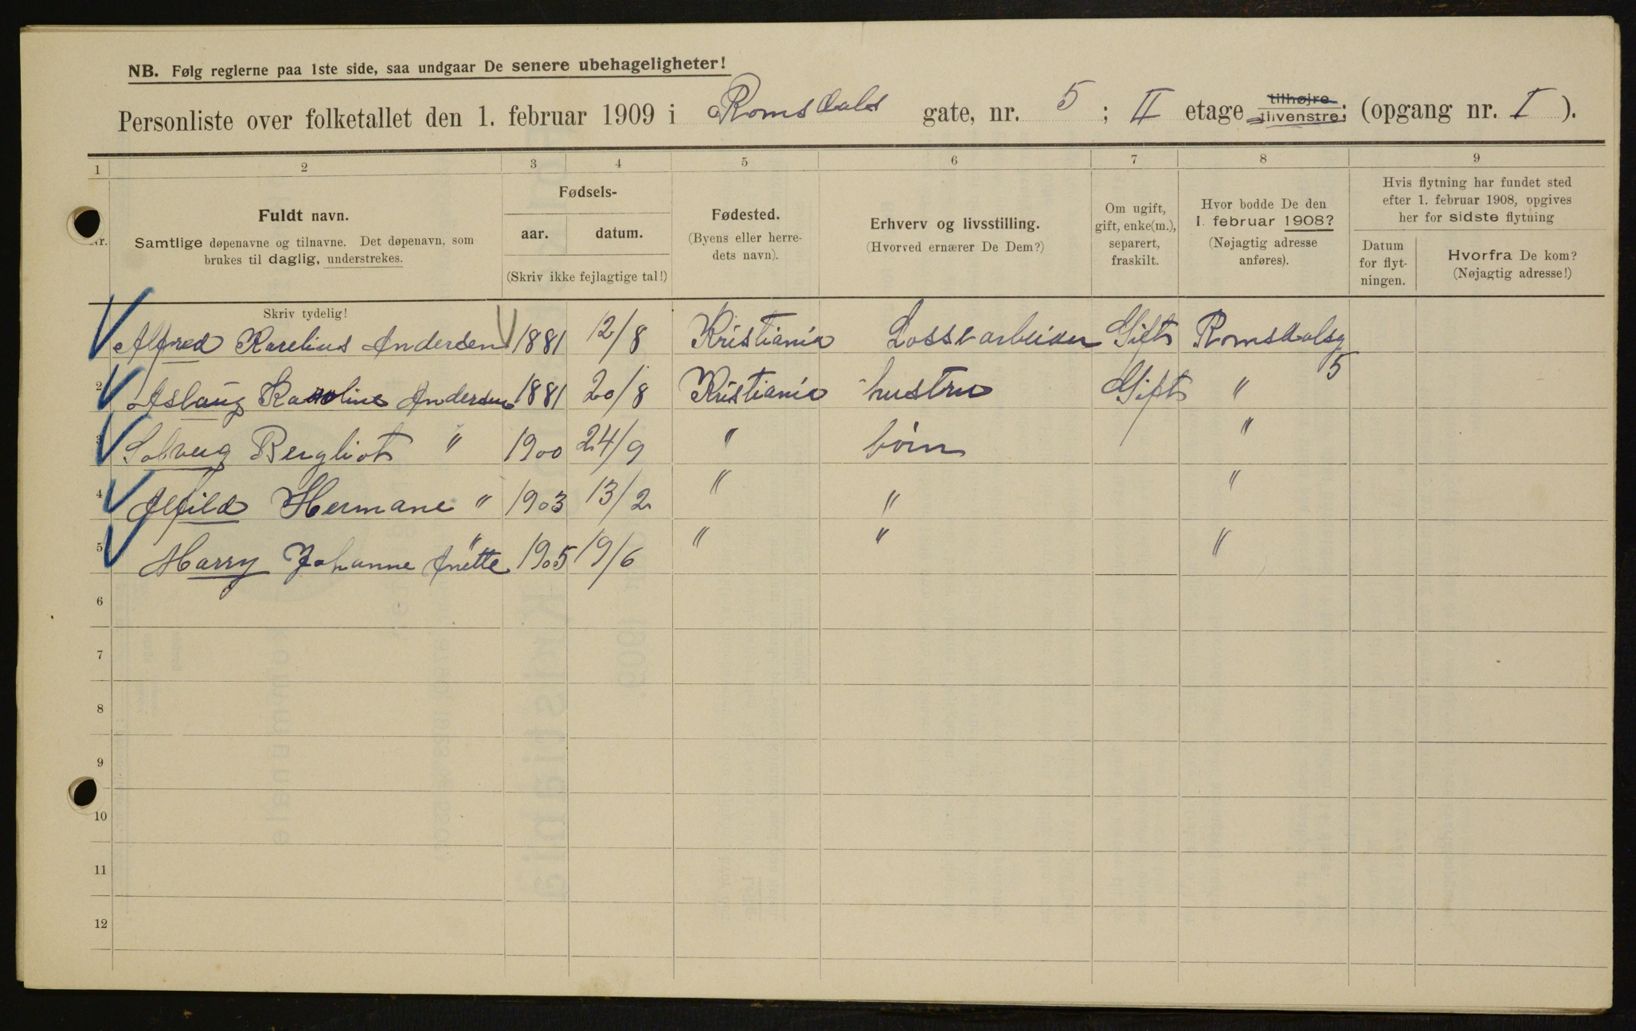 NB. Følg reglerne paa 1ste side, saa undgaar De senere ubehageligheter!
Personliste over folketallet den 1. februar 1909 i Romsdals gate, nr. 5 ; II etage tilhøjre tilvenstre; (opgang nr. I ).
1 2 3 4 5 6 7 8 9
Nr.
Fuldt navn.
Samtlige døpenavne og tilnavne. Det døpenavn, som
brukes til daglig, understrekes.
Fødsels-
aar. datum.
(Skriv ikke fejlagtige tal!)
Fødested.
(Byens eller herre-
dets navn).
Erhverv og livsstilling.
(Hvorved ernærer De Dem?)
Om ugift,
gift, enke(m.),
separert,
fraskilt.
Hvor bodde De den
1. februar 1908?
(Nøjagtig adresse
anføres).
Hvis flytning har fundet sted
efter 1. februar 1908, opgives
her for sidste flytning
Datum
for flyt-
ningen.
Hvorfra De kom?
(Nøjagtig adresse!)
Skriv tydelig!
Alfred Karelius Andersen 1881 12/8 Kristiania Lossearbeider Gift Romsdalsg 5
2 Aslaug Karoline Andersen 1881 20/8 Kristiania hustru Gift "
3 Solveig Bergliot " 1900 24/9 " børn "
4 Alfild Hermane " 1903 13/2 " " "
5 Harry Johanne Anette " 1905 19/6 " " "
6
7
8
9
10
11
12